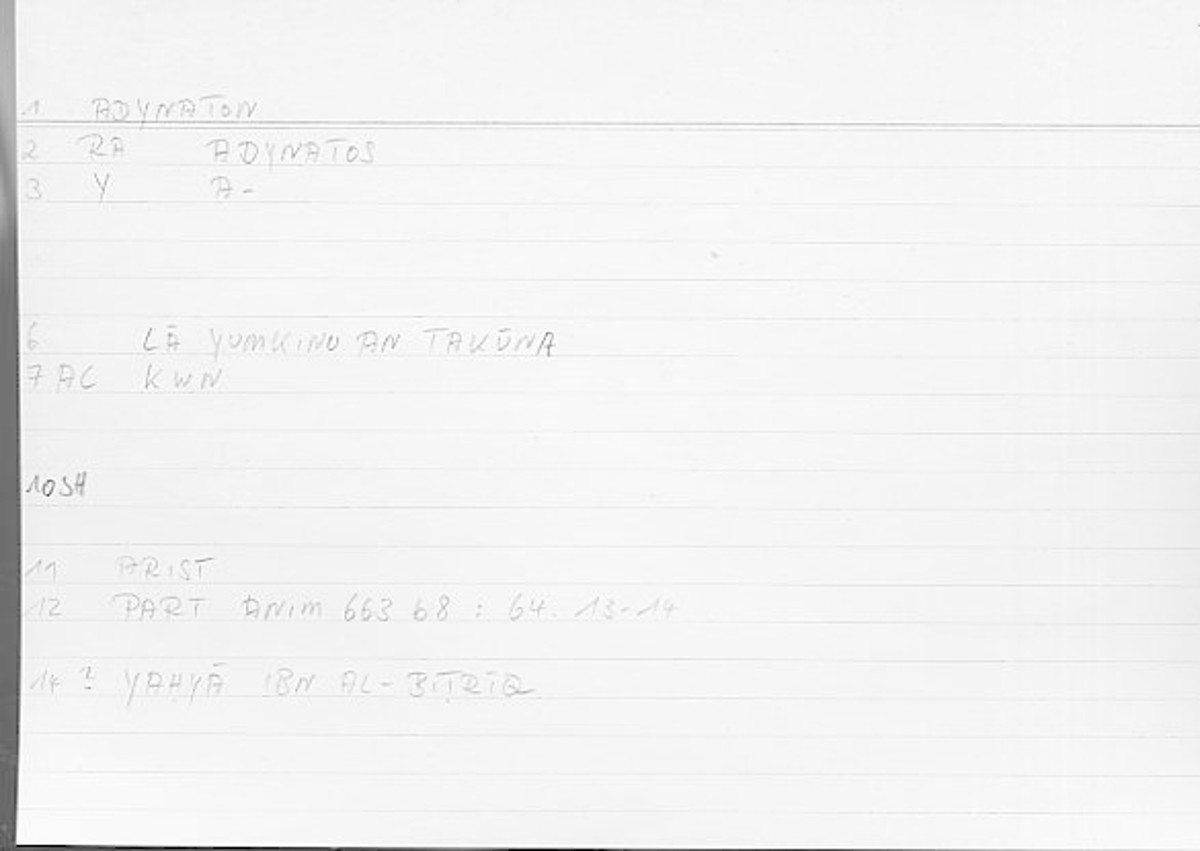 1 ADYNATON
2 RA ADYNATOS
3 Y A-
6 LĀ YUMKINU AN TAKŪNA
7 AC KWN
10 SH
11 ARIST
12 PART ANIM 663 b8 : 64. 13-14
14 ? YAḤYĀ IBN AL-BIṬRĪQ